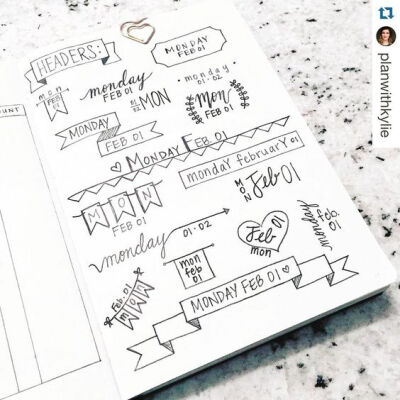 HEADERS:
MONDAY
FEB 01
mon
FEB
01
monday
FEB 01
monday
01·02
01
02
MON
Mon
FEB 01
MONDAY
FEB 01
MONDAY FEB 01
monday february 01
MON
FEB 01
MON
Feb 01
monday
01·02
monday
Feb. 01
mon
feb
01
Feb 01
mon
Feb. 01
MON
MONDAY FEB 01
planwithkylie